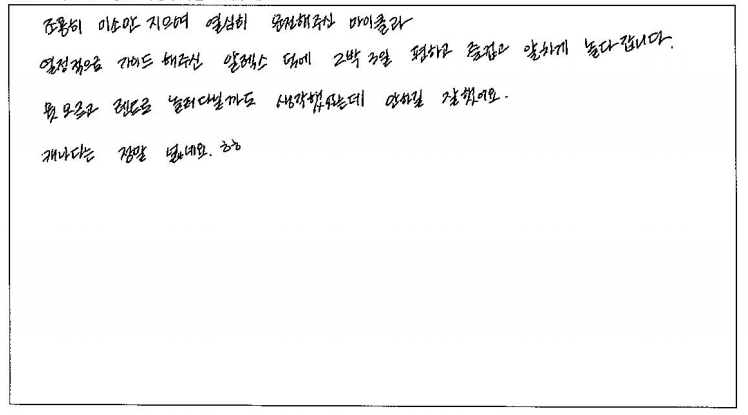 조용히 미소만 지으며 열심히 운전해주신 마이클과
열정적으로 가이드 해주신 알렉스 덕에 2박 3일 편하고 즐겁고 알차게 놀다갑니다.
뭣 모르고 렌트로 놀러다닐까도 생각했었는데 안하길 잘했어요.
캐나다는 정말 넓네요. ㅎㅎ